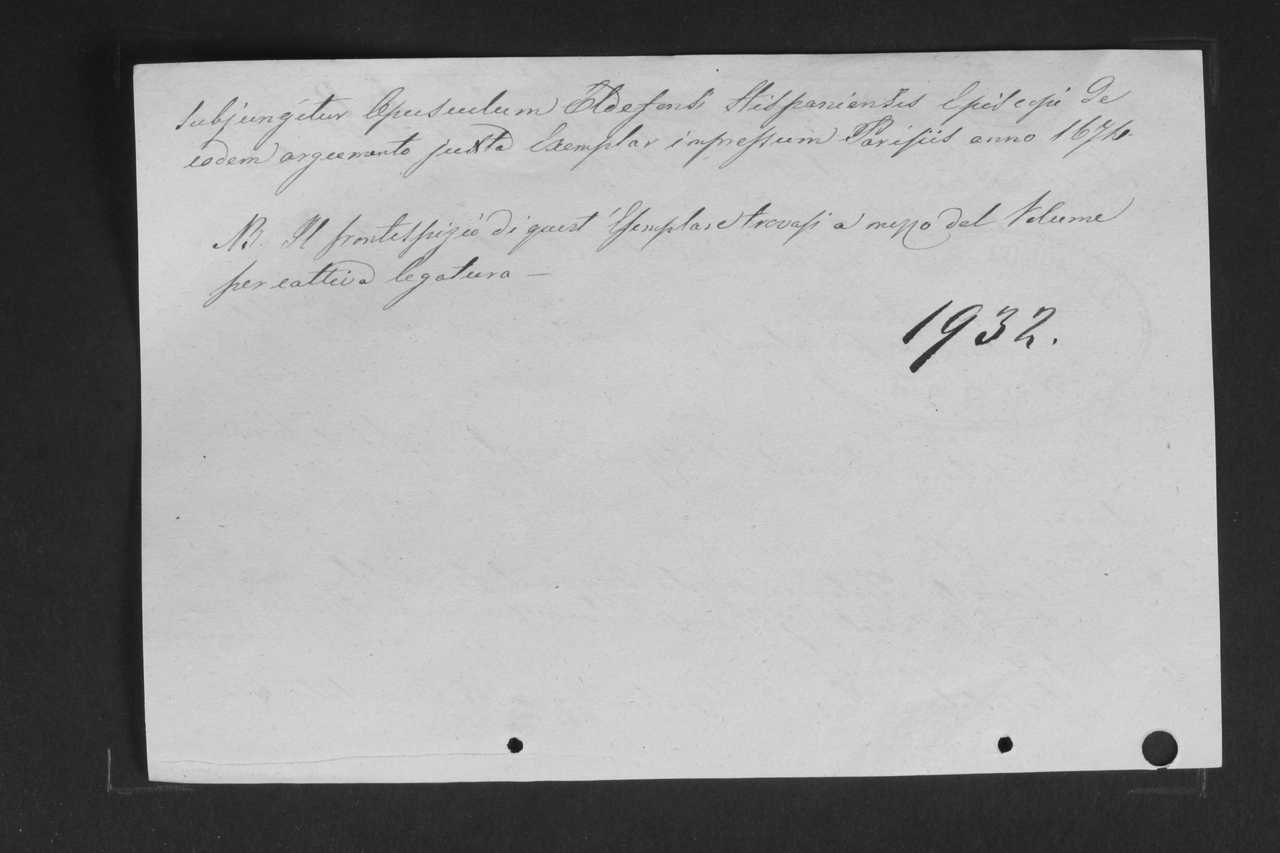 Subjungitur Opusculum Eldefonsi Hispaniensis Episcopi De
eodem argumento juxta Exemplar impressum Parisiis anno 1676
NB. Il frontispizio di quest' Esemplare trovasi a mezzo del Volume
per cattiva legatura —
1932.